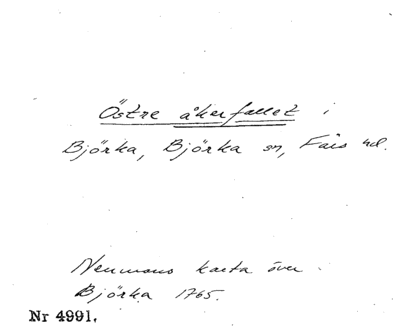 Östre åkerfallet i
Björka, Björka sn, Färs hd.
Neumans karta över
Björka 1765.
Nr 4991.